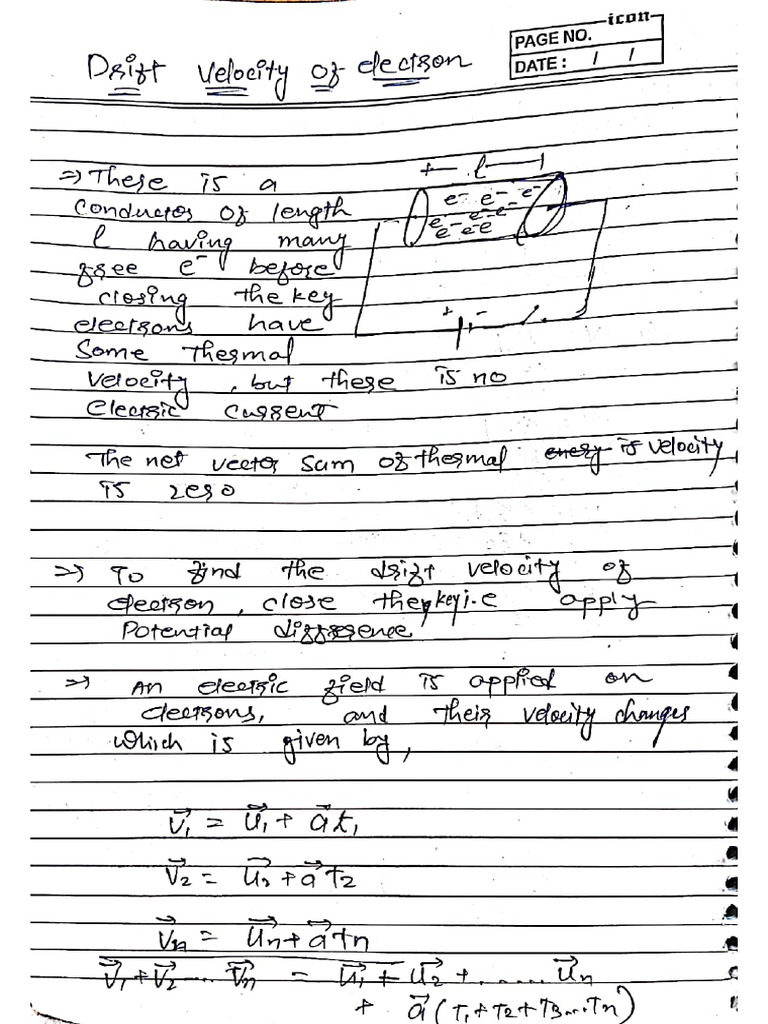 icon
PAGE NO.
DATE: / /
Drift velocity of electron
⇒ There is a
conductor of length
l having many
free e⁻ before
closing the key
electrons have
Some thermal
velocity, but there is no
Electric current
← l →
e⁻ e⁻ e⁻
e⁻ e⁻ e⁻
e⁻ e⁻ e
+ -
The net vector sum of thermal enery is velocity
is zero
⇒ To find the drift velocity of
electron, close the key i.e apply
Potential difference
⇒ An electric field is applied on
electrons, and their velocity changes
which is given by,
v⃗₁ = u⃗₁ + a⃗t₁
v⃗₂ = u⃗₂ + a⃗T₂
v⃗n = u⃗n + a⃗tn
v⃗₁ + v⃗₂ .... v⃗n = u⃗₁ + u⃗₂ + ....... u⃗n
+ a⃗ (T₁ + T₂ + T₃ ... Tn)